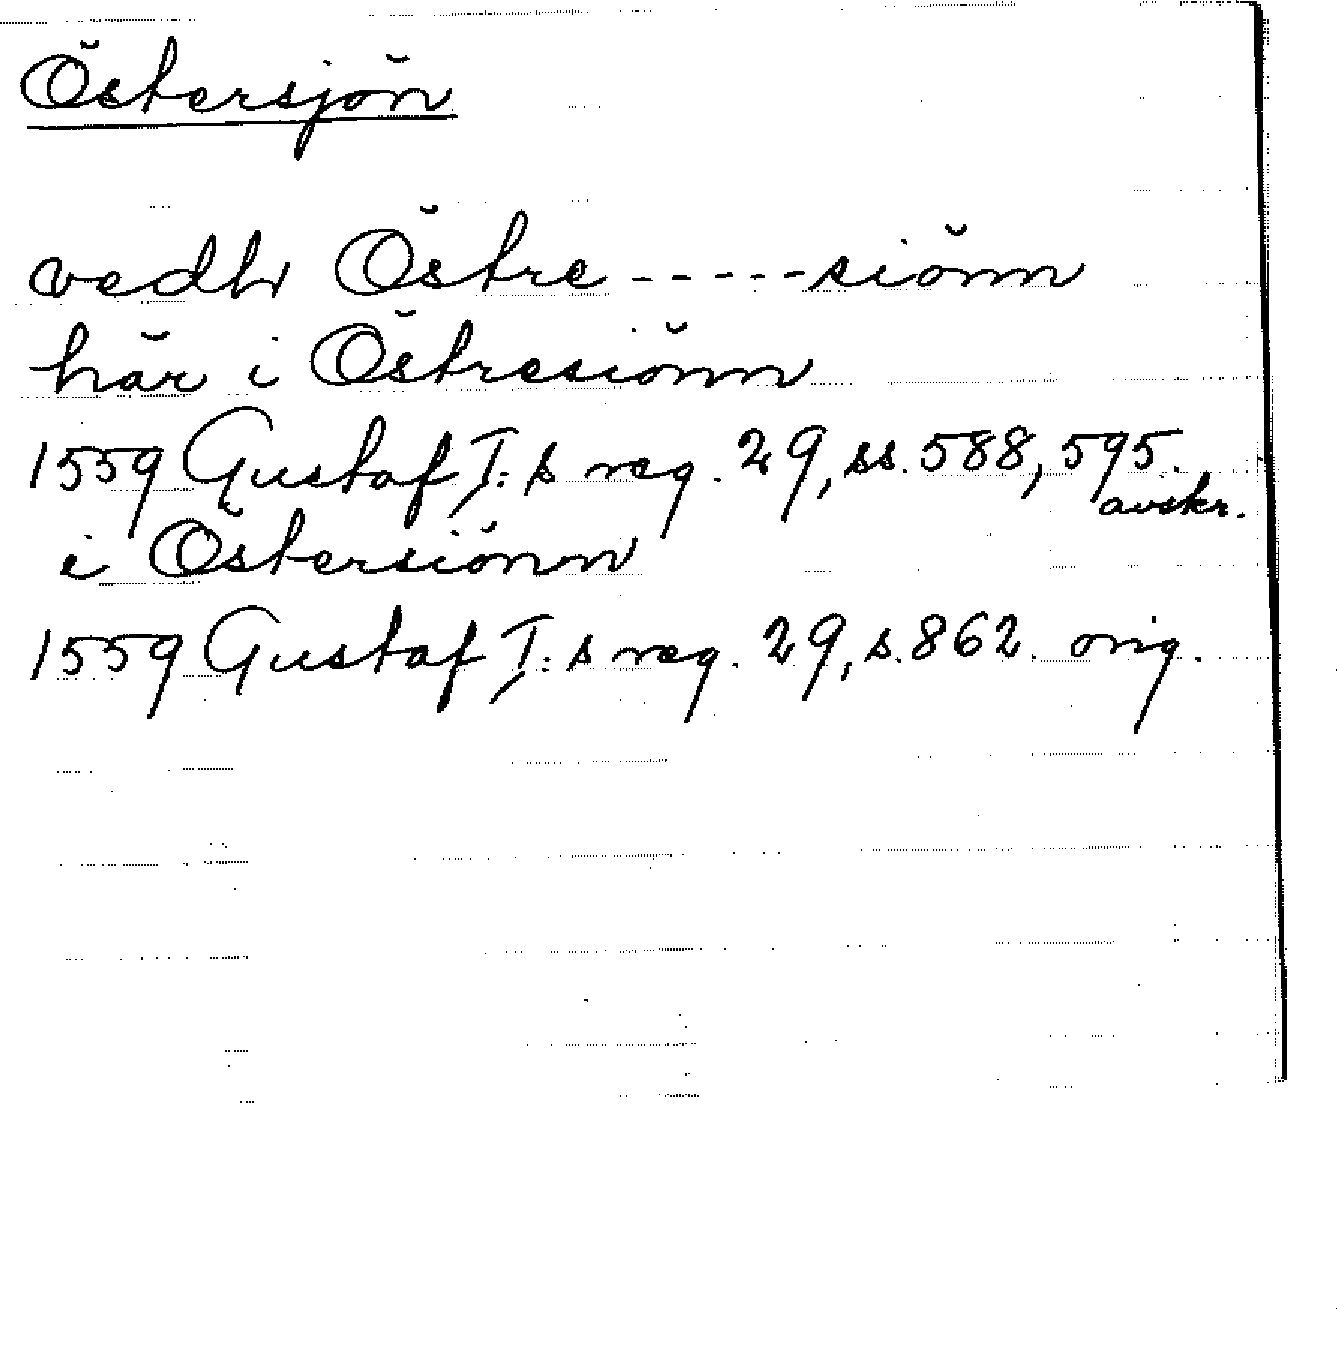 Östersjön
vedh Östre-----siönn
här i Östresiönn
1559 Gustaf I:s reg. 29, ss. 588, 595.
avskr.
i Östersiönn
1559 Gustaf I:s reg. 29, s. 862. orig.